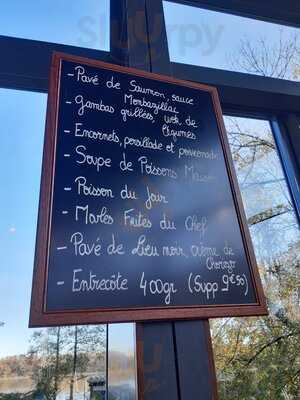 slurpy
- Pavé de Saumon, sauce
Monbazillac
- Gambas grillées, wok de
légumes
- Encornets, persillade et
- Soupe de Poissons Maison
- Poisson du Jour
- Moules Frites du Chef
- Pavé de Lieu noir, crème de
Chorizo
- Entrecôte 400gr (Supp 9€50)